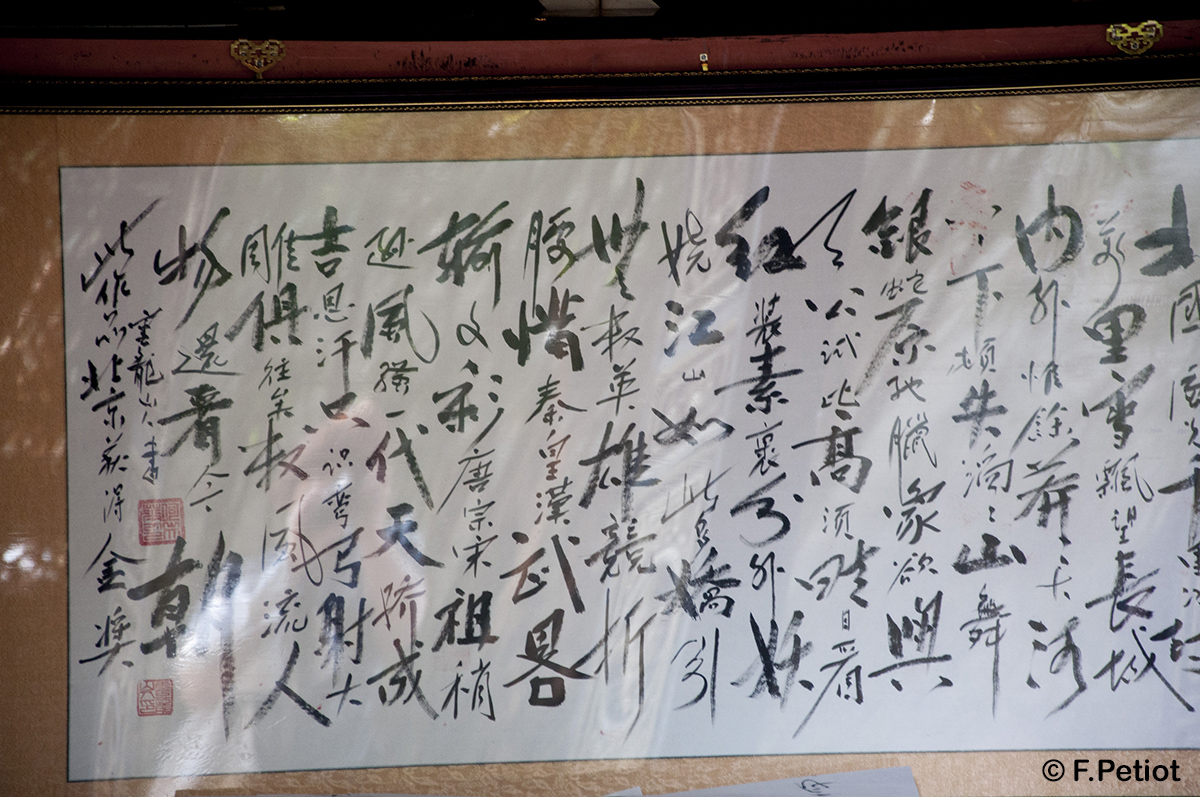 北國風光千里冰封
萬里雪飄望長城
內外惟餘莽々大河
上下頓失滔々山舞
銀蛇原馳臘象欲與
天公試比高須晴日看
紅裝素裹分外妖
嬈江山如此多嬌引
無數英雄競折
腰惜秦皇漢武略
輸文彩唐宗宋祖稍
遜風騷一代天驕成
吉思汗只識彎弓射大
雕俱往矣數風流人
物還看今朝
龍山人書
此作品北京获得金奖
© F.Petiot